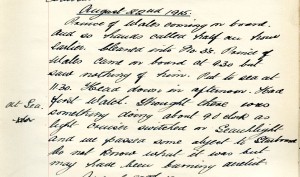 August 22nd 1915.
Prince of Wales coming on board.
And so hands called half an hour
earlier. Cleaned into No 3s. Prince of
Wales came on board at 930 but
saw nothing of him. Put to sea at
11.30. Head down in afternoon. Had
first Watch. Thought there was
at Sea.
something doing about 90 clock as
light cruiser switched on Searchlight
and we passed some object to Starboard
do not know what it was but
may have been burning